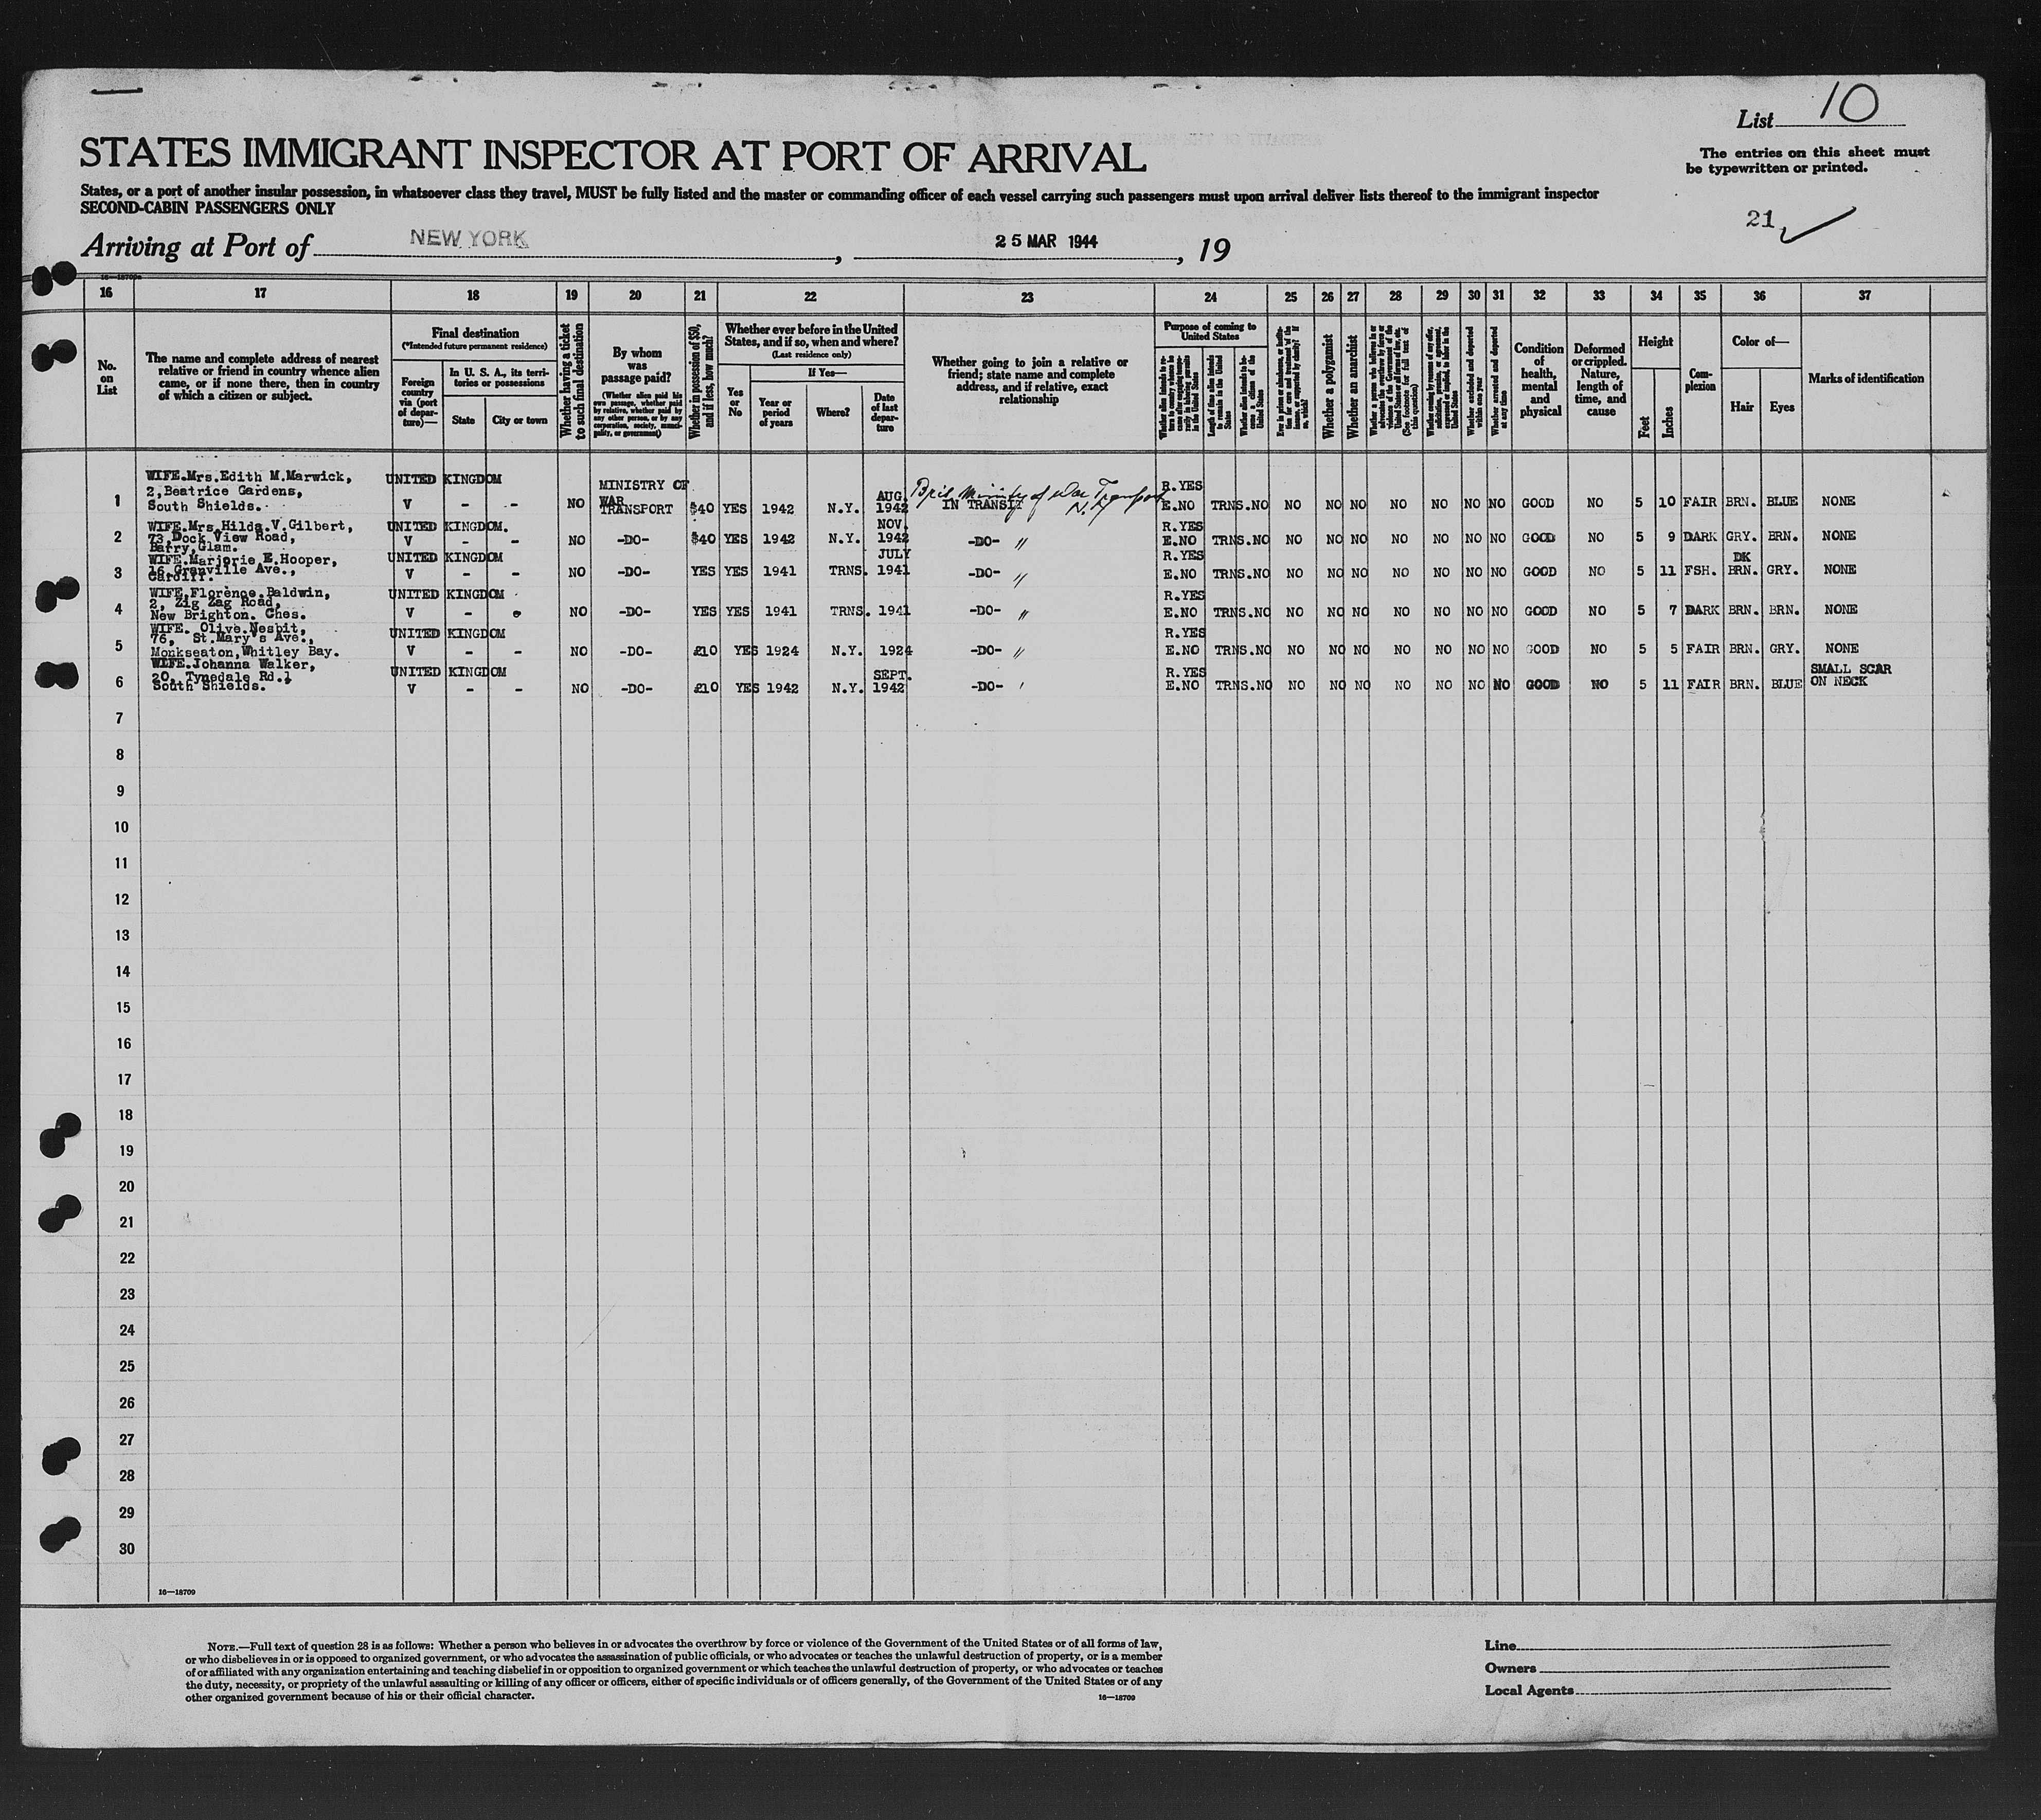 List 10
STATES IMMIGRANT INSPECTOR AT PORT OF ARRIVAL
The entries on this sheet must
be typewritten or printed.
States, or a port of another insular possession, in whatsoever class they travel, MUST be fully listed and the master or commanding officer of each vessel carrying such passengers must upon arrival deliver lists thereof to the immigrant inspector
SECOND-CABIN PASSENGERS ONLY
21
Arriving at Port of NEW YORK, 25 MAR 1944, 19
16 17 18 19 20 21 22 23 24 25 26 27 28 29 30 31 32 33 34 35 36 37
No. on List
The name and complete address of nearest
relative or friend in country whence alien
came, or if none there, then in country
of which a citizen or subject.
Final destination
(*Intended future permanent residence)
Foreign country via (port of departure)—
In U. S. A., its territories or possessions
State
City or town
Whether having a ticket to such final destination
By whom was passage paid?
(Whether alien paid his own passage, whether paid by relative, whether paid by any other person, or by any corporation, society, municipality, or government)
Whether in possession of $50, and if less, how much?
Whether ever before in the United States, and if so, when and where?
(Last residence only)
Yes or No
If Yes—
Year or period of years
Where?
Date of last departure
Whether going to join a relative or
friend; state name and complete
address, and if relative, exact
relationship
Purpose of coming to United States
Length of time alien intends to remain in the United States
Whether alien intends to become a citizen of the United States
Whether a polygamist
Whether an anarchist
(See footnote for full text of this question)
Whether excluded and deported within one year
Whether arrested and deported at any time
Condition of health, mental and physical
Deformed or crippled. Nature, length of time, and cause
Height
Feet
Inches
Complexion
Color of—
Hair
Eyes
Marks of identification
1 WIFE.Mrs.Edith M.Marwick, 2,Beatrice Gardens, South Shields. UNITED KINGDOM V - - NO MINISTRY OF WAR TRANSPORT $40 YES 1942 N.Y. AUG. 1942 Brit. Ministry of War Transport N.Y. IN TRANSIT R.YES E.NO TRNS.NO NO NO NO NO NO NO NO GOOD NO 5 10 FAIR BRN. BLUE NONE
2 WIFE.Mrs.Hilda.V.Gilbert, 73,Dock View Road, Barry,Glam. UNITED KINGDOM. V - - NO -DO- $40 YES 1942 N.Y. NOV. 1942 -DO- " R.YES E.NO TRNS.NO NO NO NO NO NO NO NO GOOD NO 5 9 DARK GRY. BRN. NONE
3 WIFE.Marjorie E.Hooper, 16,Granville Ave., Cardiff. UNITED KINGDOM V - - NO -DO- YES YES 1941 TRNS. JULY 1941 -DO- " R.YES E.NO TRNS.NO NO NO NO NO NO NO NO GOOD NO 5 11 FSH. DK BRN. GRY. NONE
4 WIFE,Florence.Baldwin, 2, Zig Zag Road, New Brighton. Ches. UNITED KINGDOM V - - NO -DO- YES YES 1941 TRNS. 1941 -DO- " R.YES E.NO TRNS.NO NO NO NO NO NO NO NO GOOD NO 5 7 DARK BRN. BRN. NONE
5 WIFE. Olive.Nesbit, 76, St.Mary's Ave., Monkseaton,Whitley Bay. UNITED KINGDOM V - - NO -DO- £10 YES 1924 N.Y. 1924 -DO- " R.YES E.NO TRNS.NO NO NO NO NO NO NO NO GOOD NO 5 5 FAIR BRN. GRY. NONE
6 WIFE.Johanna Walker, 20, Tynedale Rd. South Shields. UNITED KINGDOM V - - NO -DO- £10 YES 1942 N.Y. SEPT. 1942 -DO- R.YES E.NO TRNS.NO NO NO NO NO NO NO NO GOOD NO 5 11 FAIR BRN. BLUE SMALL SCAR ON NECK
7
8
9
10
11
12
13
14
15
16
17
18
19
20
21
22
23
24
25
26
27
28
29
30
16—18709
NOTE.—Full text of question 28 is as follows: Whether a person who believes in or advocates the overthrow by force or violence of the Government of the United States or of all forms of law,
or who disbelieves in or is opposed to organized government, or who advocates the assassination of public officials, or who advocates or teaches the unlawful destruction of property, or is a member
of or affiliated with any organization entertaining and teaching disbelief in or opposition to organized government or which teaches the unlawful destruction of property, or who advocates or teaches
the duty, necessity, or propriety of the unlawful assaulting or killing of any officer or officers, either of specific individuals or of officers generally, of the Government of the United States or of any
other organized government because of his or their official character.
16—18709
Line
Owners
Local Agents